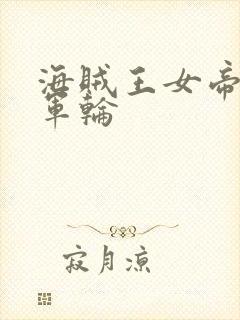 海賊王女帝
軍輪
寂月涼